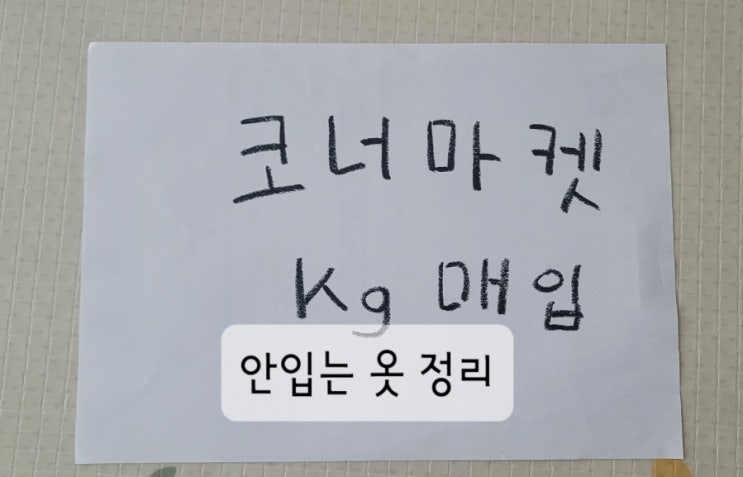 코너마켓
Kg 매입
안입는 옷 정리